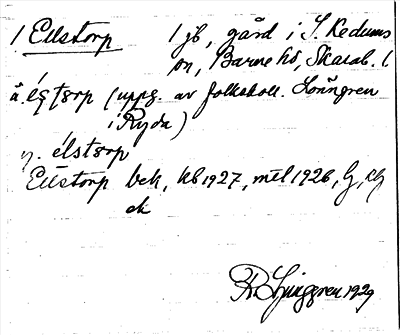 1 Eilstorp 1 jb, gård i S. Kedums
sn, Barne hd, Skarab. l
(uppg. av folkskoll. Lönngren
i Ryda)
y. élstorp
Eilstorp bek, kb 1927, mtl 1926,
ek
R Ljunggren 1929